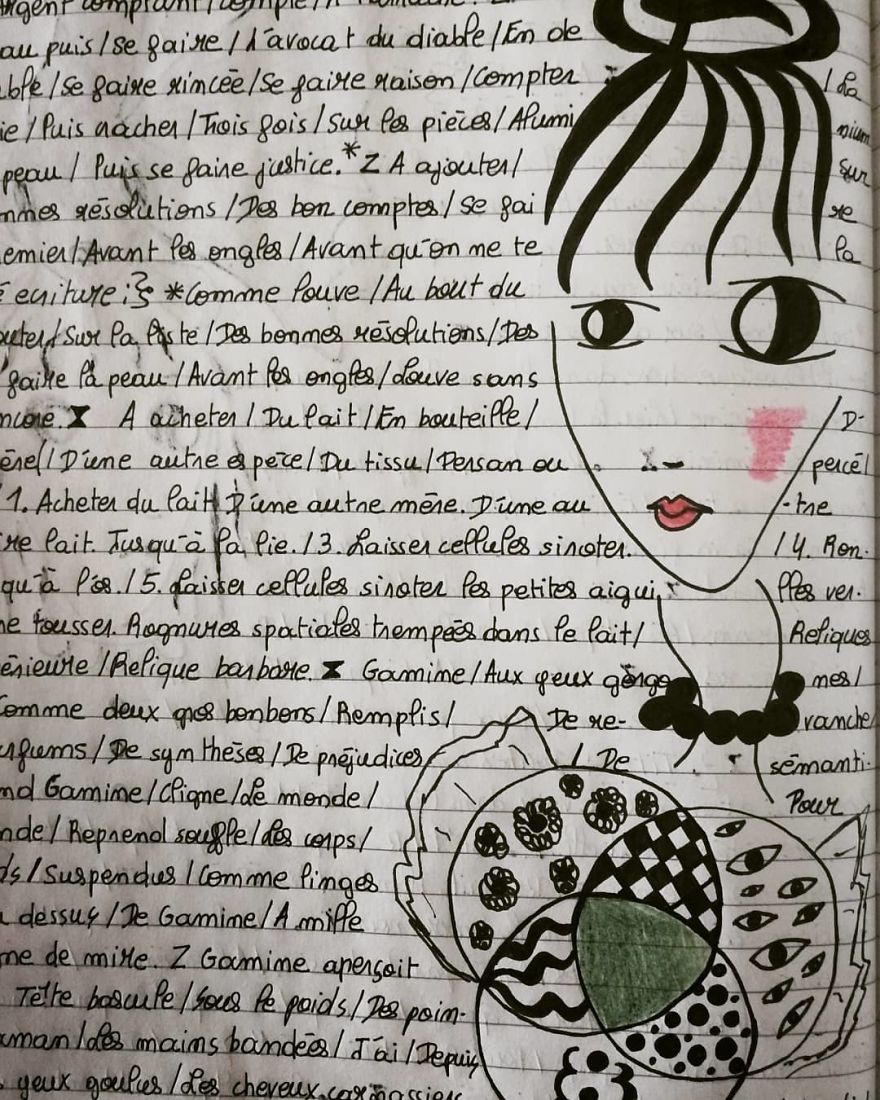 argent comptant/compte/
au puis/se faire/L'avocat du diable/En de
/se faire rincée/se faire raison/compter /La
ie/Puis cracher/Trois fois/sur les pièces/Alumi nium
peau/Puis se faire justice.*Z A ajouter/ sur
mmes résolutions/Des bon comptes/se fai re
emier/Avant les ongles/Avant qu'on me te la
écriture *comme Louve/Au bout du
/sur la liste/Des bonnes résolutions/Des
faire la peau/Avant les ongles/Louve sans
ncore. A acheter/Du lait/En bouteille/ D-
D'une autre espèce/Du tissu/Persan ou percé/
1. Acheter du lait D'une autre mère. D'une au -tre
re lait. Jusqu'à la lie./3. Laisser cellules siroter. /4. Ron-
qu'à l'os./5. Laisser cellules siroter les petites aigui lles ver-
ne tousser. Rognures spatiales trempées dans le lait/ Reliques
érieure/Relique barbare. Gamine/Aux yeux gorge mes/
comme deux gros bonbons/Remplis/ De re- vranche
/De synthèses/De préjudices / De sémanti-
nd Gamine/Cligne/Le monde/ Pour
nde/Reprend souffle/Les corps/
ds/suspendus/comme linges
dessus/De Gamine/A mille
ne de mire. Z Gamine aperçoit
Tête bascule/Sous le poids/Des poim-
aman/Les mains bandées/J'ai/Depuis
yeux goulus/Les cheveux carnassiers